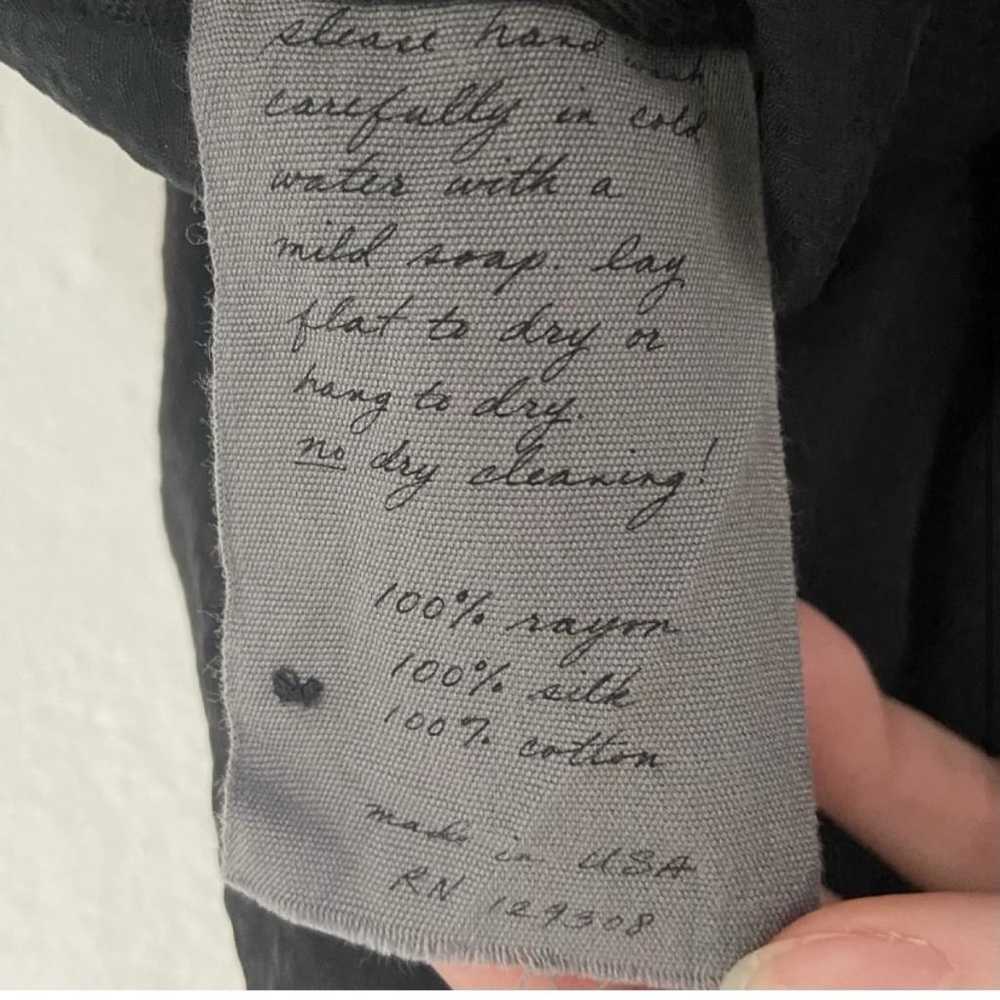 please hand wash
carefully in cold
water with a
mild soap. lay
flat to dry or
hang to dry.
no dry cleaning!
100% rayon
100% silk
100% cotton
made in USA
RN 129308